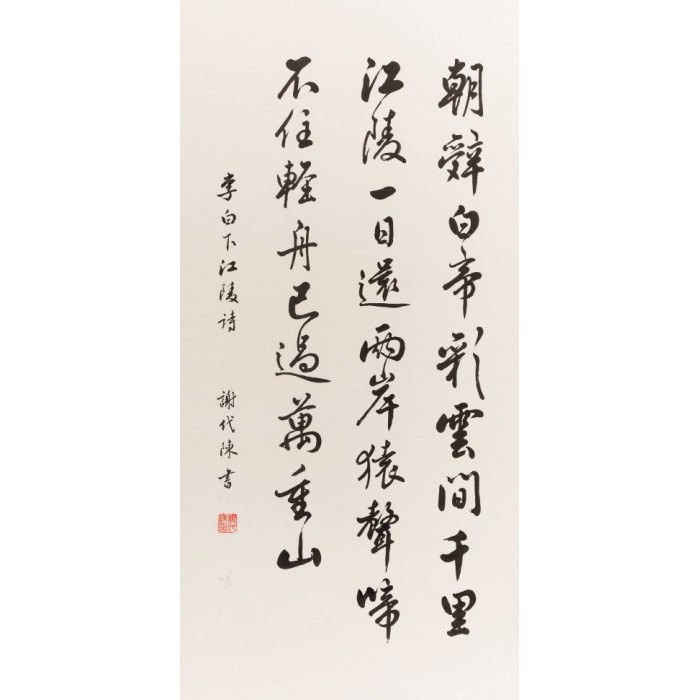 朝辞白帝彩雲間千里
江陵一日還兩岸猿聲啼
不住輕舟已過萬重山
李白下江陵詩 謝代陳書